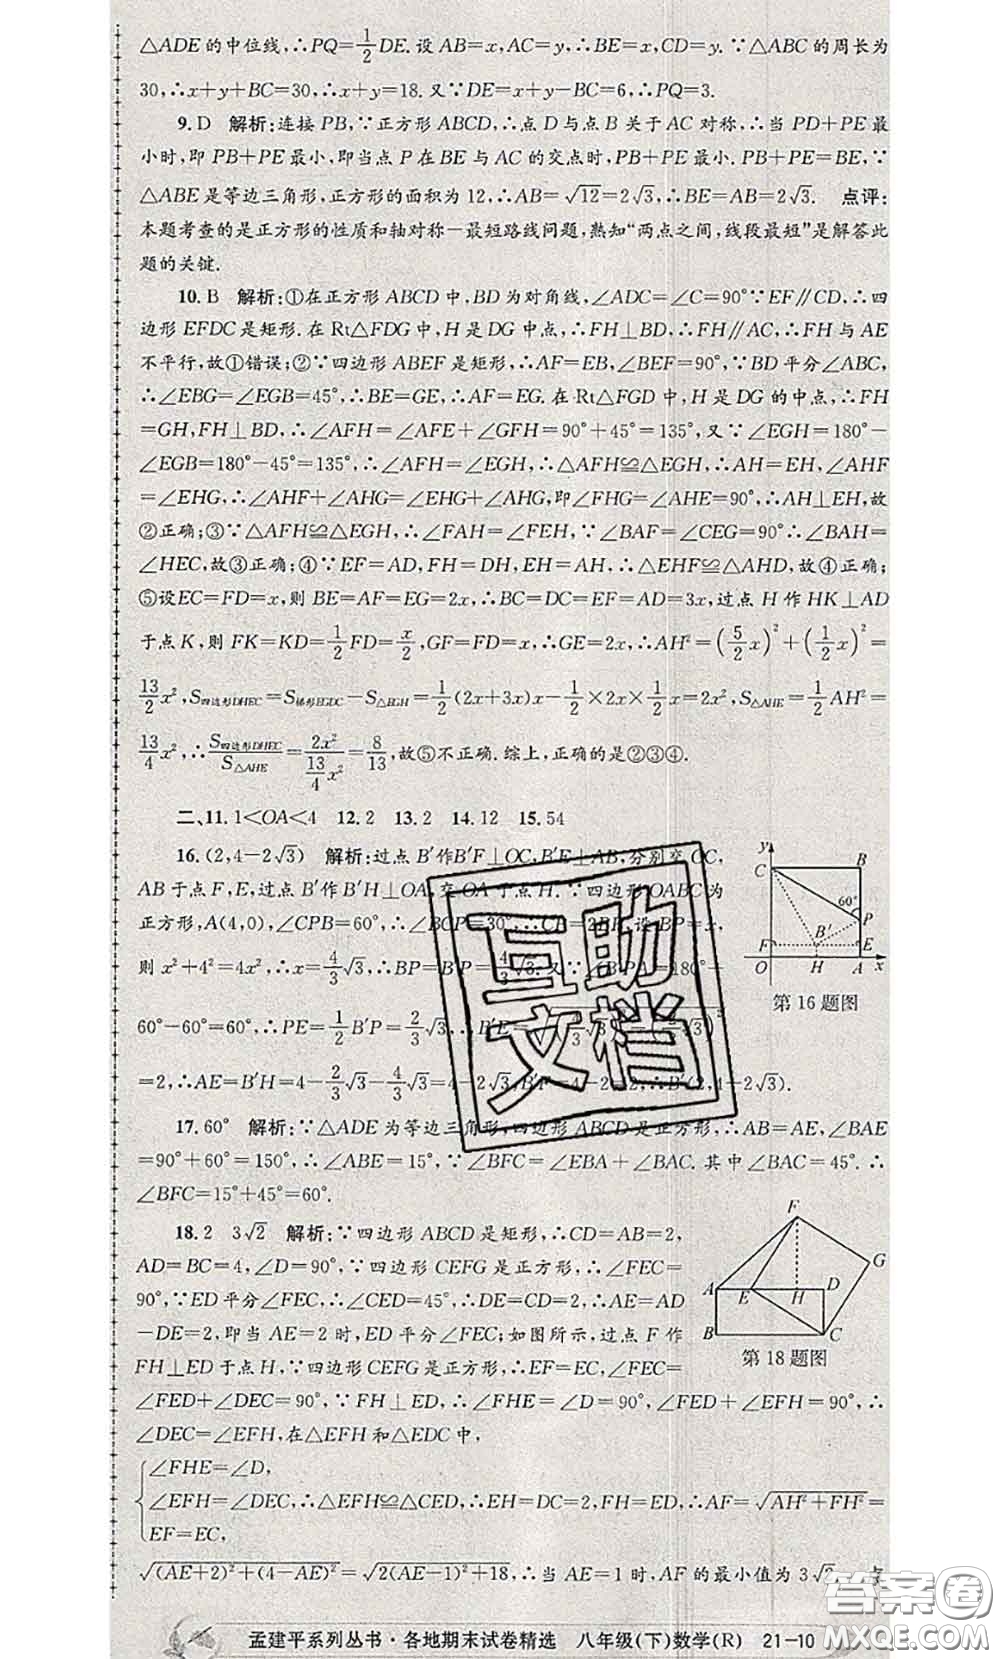 △ADE的中位线,∴PQ=1/2DE.设AB=x,AC=y,∴BE=x,CD=y.∵△ABC的周长为
30,∴x+y+BC=30,∴x+y=18.又∵DE=x+y−BC=6,∴PQ=3.
9.D 解析:连接PB,∵正方形ABCD,∴点D与点B关于AC对称,∴当PD+PE最
小时,即PB+PE最小,即当点P在BE与AC的交点时,PB+PE最小.PB+PE=BE,∵
△ABE是等边三角形,正方形的面积为12,∴AB=√12=2√3,∴BE=AB=2√3. 点评:
本题考查的是正方形的性质和轴对称—最短路线问题,熟知“两点之间,线段最短”是解答此
题的关键.
10.B 解析:①在正方形ABCD中,BD为对角线,∠ADC=∠C=90°∵EF∥CD,∴四
边形EFDC是矩形.在Rt△FDG中,H是DG中点,∴FH⊥BD,∴FH∥AC,∴FH与AE
不平行,故①错误;②∵四边形ABEF是矩形,∴AF=EB,∠BEF=90°,∵BD平分∠ABC,
∴∠EBG=∠EGB=45°,∴BE=GE,∴AF=EG.在Rt△FGD中,H是DG的中点,∴FH
=GH,FH⊥BD,∴∠AFH=∠AFE+∠GFH=90°+45°=135°,又∵∠EGH=180°−
∠EGB=180°−45°=135°,∴∠AFH=∠EGH,∴△AFH≌△EGH,∴AH=EH,∠AHF
=∠EHG,∴∠AHF+∠AHG=∠EHG+∠AHG,即∠FHG=∠AHE=90°,∴AH⊥EH,故
②正确;③∵△AFH≌△EGH,∴∠FAH=∠FEH,∵∠BAF=∠CEG=90°∴∠BAH=
∠HEC,故③正确;④∵EF=AD,FH=DH,EH=AH,∴△EHF≌△AHD,故④正确;
⑤设EC=FD=x,则BE=AF=EG=2x,∴BC=DC=EF=AD=3x,过点H作HK⊥AD
于点K,则FK=KD=1/2FD=x/2,GF=FD=x,∴GE=2x,∴AH²=(5/2x)²+(1/2x)²=
13/2x²,S四边形DHEC=S梯形EGDC−S△EGH=1/2(2x+3x)x−1/2×2x×1/2x=2x²,S△AHE=1/2AH²=
13/4x²,∴S四边形DHEC/S△AHE=2x²/(13/4x²)=8/13,故⑤不正确.综上,正确的是②③④.
二、11.1<OA<4 12.2 13.2 14.12 15.54
16.(2,4−2√3) 解析:过点B′作B′F⊥OC,B′E⊥AB,分别交OC,
AB于点F,E,过点B′作B′H⊥OA,交OA于点H.∵四边形OABC为
正方形,A(4,0),∠CPB=60°,∴∠BCP=30°,∴CP=2BP,设BP=x,
则x²+4²=4x²,∴x=4/3√3,∴BP=B′P=4/3√3.又∵∠B′PA=180°−
60°−60°=60°,∴PE=1/2B′P=2/3√3
=2,∴AE=B′H=4−2/3√3−4/3√3=4−2√3,B′F=4−2=2,∴B′(2,4−2√3).
y C B 60° P F B′ E O H A x
第16题图
17.60° 解析:∵△ADE为等边三角形,四边形ABCD是正方形,∴AB=AE,∠BAE
=90°+60°=150°,∴∠ABE=15°,∵∠BFC=∠EBA+∠BAC.其中∠BAC=45°.∴
∠BFC=15°+45°=60°.
18.2 3√2 解析:∵四边形ABCD是矩形,∴CD=AB=2,
AD=BC=4,∠D=90°,∵四边形CEFG是正方形,∴∠FEC=
90°,∵ED平分∠FEC,∴∠CED=45°,∴DE=CD=2,∴AE=AD
−DE=2,即当AE=2时,ED平分∠FEC;如图所示,过点F作
FH⊥ED于点H,∵四边形CEFG是正方形,∴EF=EC,∠FEC=
∠FED+∠DEC=90°,∵FH⊥ED,∴∠FHE=∠D=90°,∠FED+∠EFH=90°,∴
∠DEC=∠EFH,在△EFH和△EDC中,
F G A E H D B C
第18题图
∠FHE=∠D,
∠EFH=∠DEC,∴△EFH≌△CED,∴EH=DC=2,FH=ED,∴AF=√(AH²+FH²)=
EF=EC,
√((AE+2)²+(4−AE)²)=√(2(AE−1)²+18),∴当AE=1时,AF的最小值为3√2. 点
孟建平系列丛书·各地期末试卷精选 八年级(下)数学(R) 21−10
互助
文档
答案圈
MXQE.COM